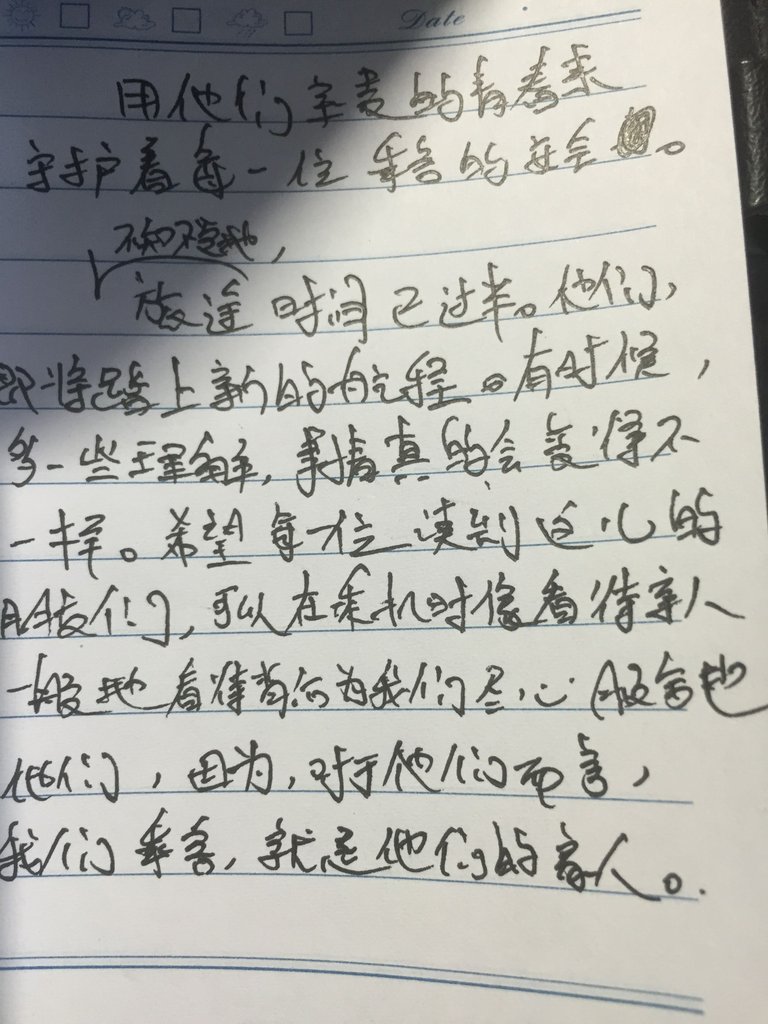 Date
用他们宝贵的青春来
守护着每一位乘客的安全。
不知不觉地，
旅途时间已过半。他们，
即将踏上新的航程。有时候，
多一些理解，事情真的会变得不
一样。希望每一位读到这儿的
朋友们，可以在乘机时像看待亲人
一般地看待着为我们尽心服务地
他们，因为，对于他们而言，
我们乘客，就是他们的家人。